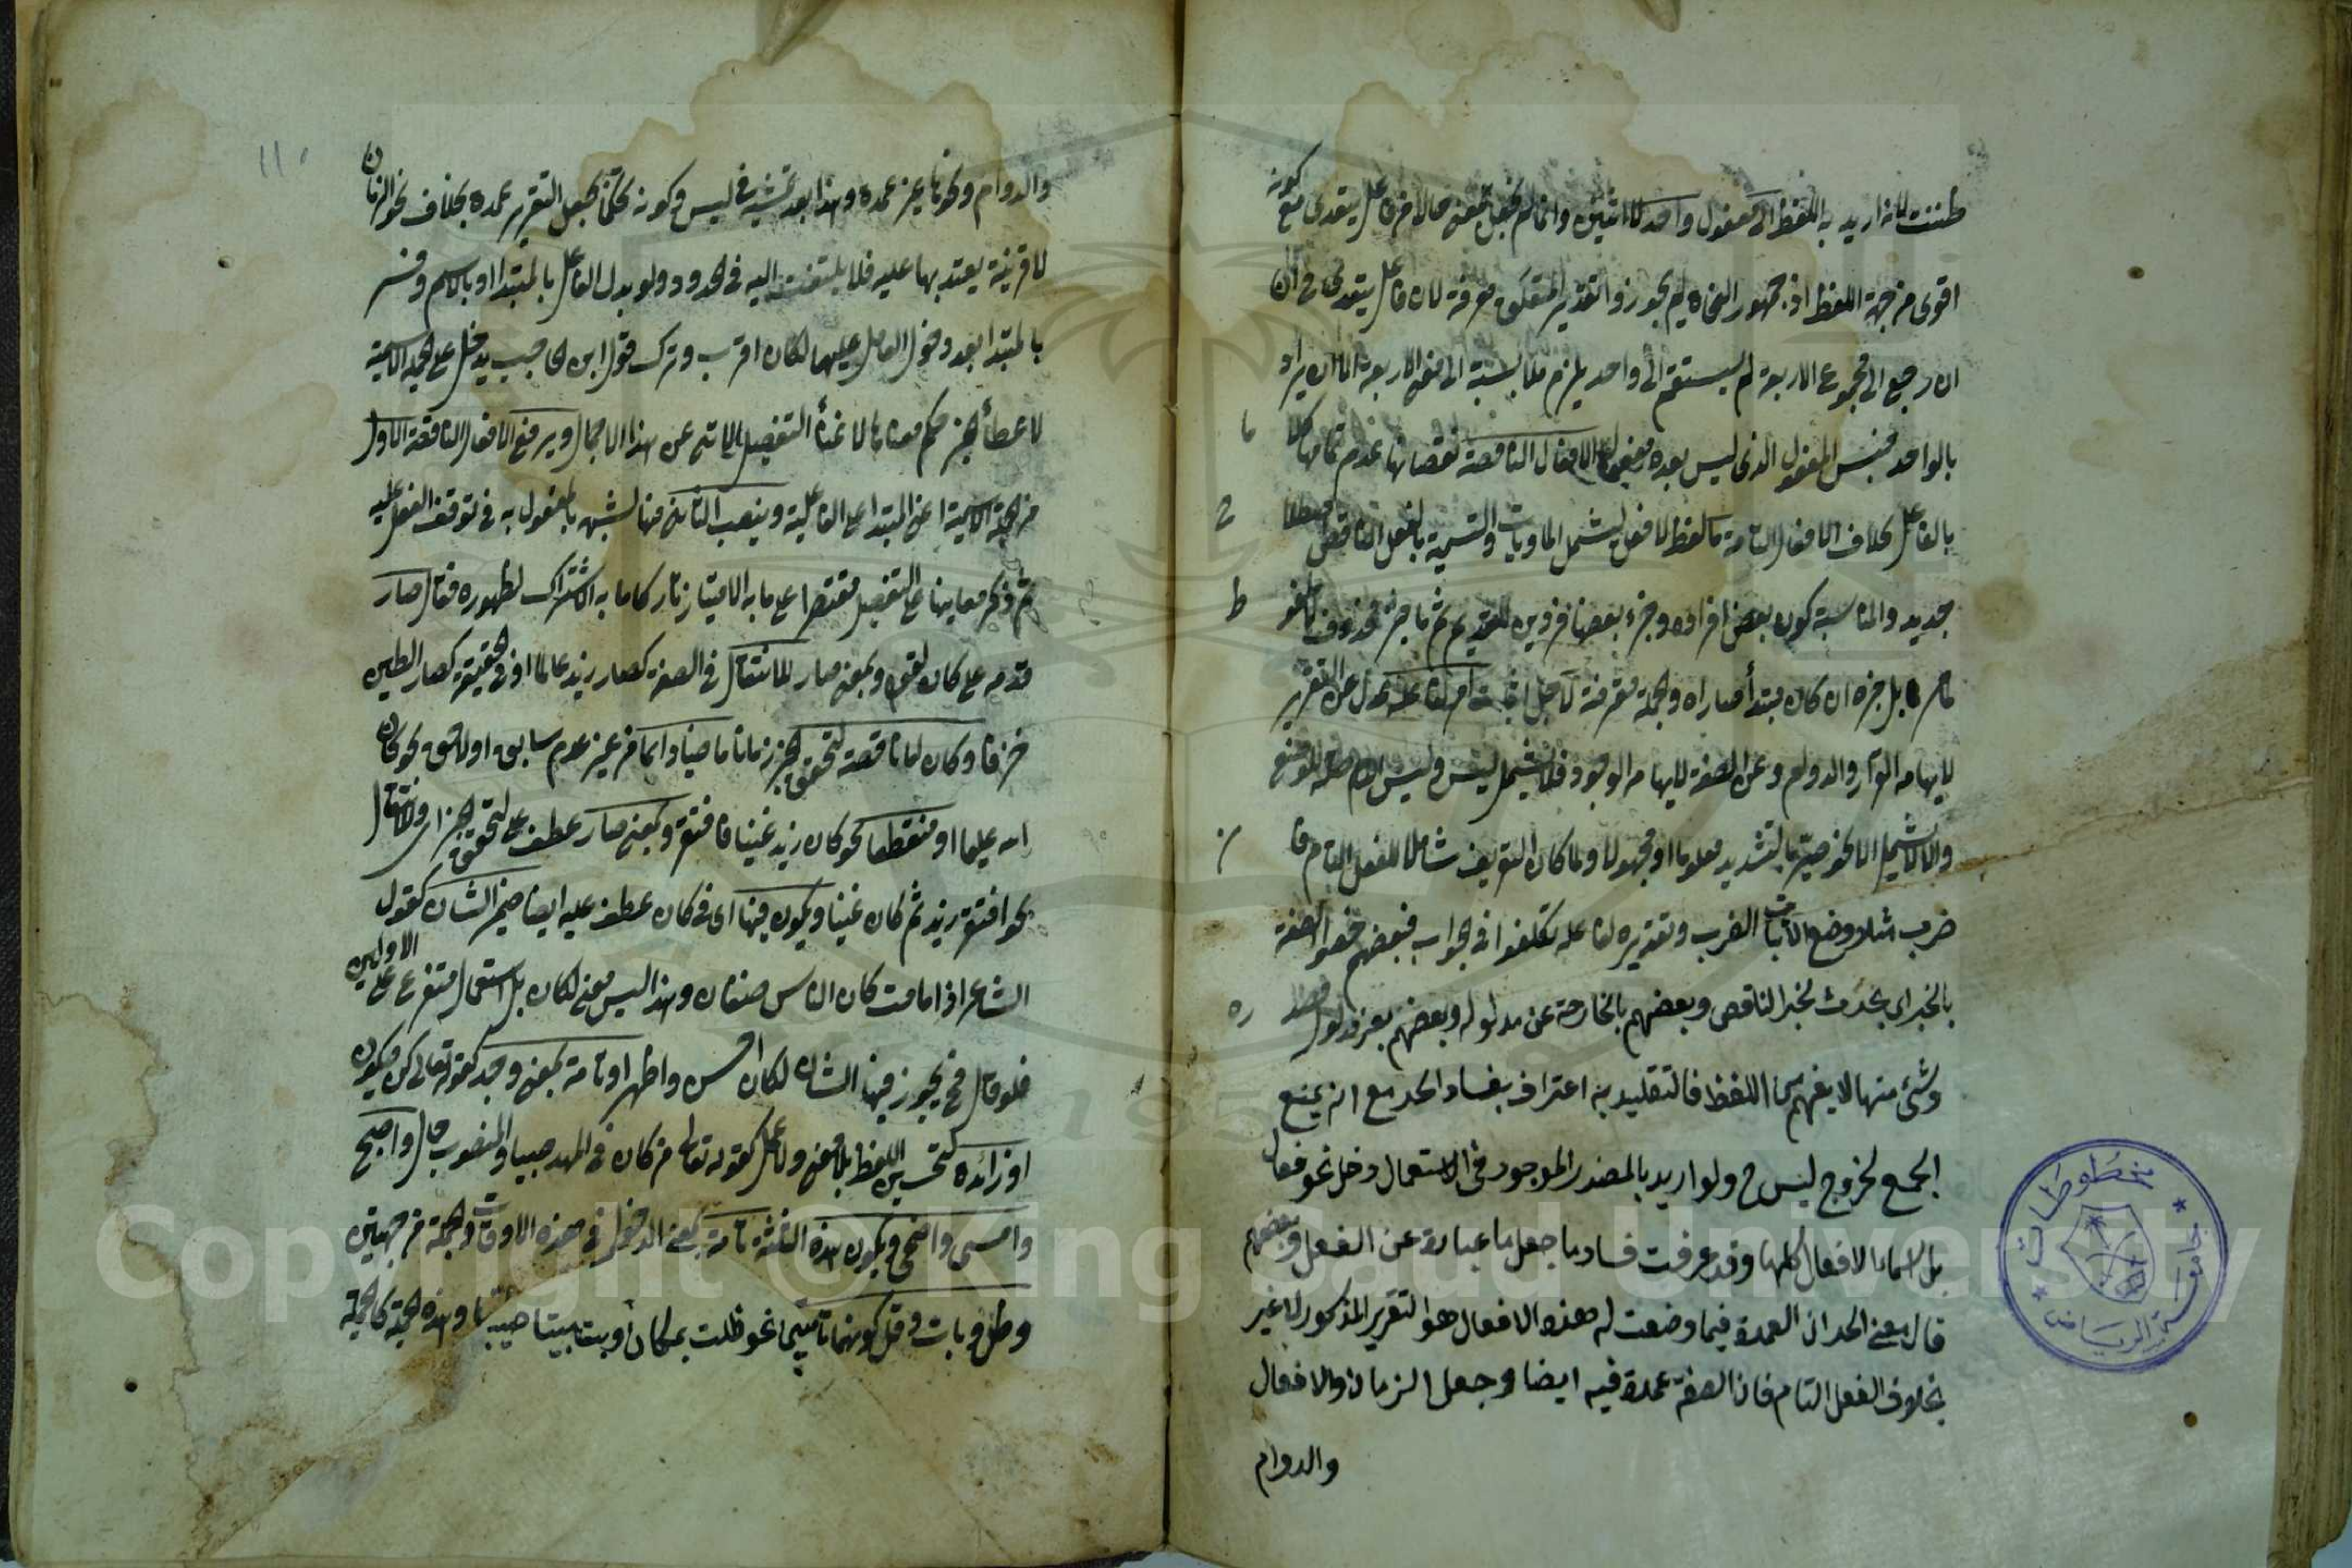 ظننت لانه اريد به اللفظ الى مفعول واحد لا اثنين وانما لم يجعل بمعنى حالا من فاعل يتعدى مع كونه
اقوى من جهة اللفظ اذ جمهور النحاة لم يجوزوا تقدير المتعلق معرفة لان فاعل يتعدى في ان
ان رجع الى مجموع الاربعة لم يستقم الى واحد يلزم ملابسة الى مفع الاربعة الا ان يراد
بالواحد جنس المفعول الذي ليس بعده مفعول الافعال الناقصة نقصانها عدم تمامها كلا
بالفاعل بخلاف الافعال التامة ما لفظ لافعل ليشمل الماويات والتسمية بالفعل الناقص
جديد والمناسبة كون بعض افراده وجزء بعضها
بل جزه ان كان مبتدأ صار اه والجملة معرفة
لايهامه والدوام وعن الصفة لايهامه الوجود فلا يشمل ليس وليس
والا لا يشمل الا نحو صير بالتشديد معلوما او مجهولا ولما كان التعريف شاملا للفعل التام فا
ضرب مثلا وضع لاثبات الضرب وتقديره لفاعله تكلفوا في الجواب فبعضهم خصوا الصفة
بالخبر اي بحدث لخبر الناقص وبعضهم بالخارجة عن مدلوله وبعضهم بغير مدلول
وشئ منها لا يفهم من اللفظ فالتقليد به اعتراف بفساد الحد مع انه يمنع
الجمع لخروج ليس ح ولو اريد بالمصدر الموجود في الاستعمال دخل نحو فعال
بل اسماء الافعال كلها وقد عرفت فساد ما جعل ما عبارة عن الفعل وبعضهم
قال معنى الحد ان العمدة فيما وضعت له هذه الافعال هو التقرير المذكور لا غير
بخلاف الفعل التام فان الصفة عمدة فيه ايضا وجعل الزمان والافعال
والدوام
والدوام وكونها غير عمدة وهذا بعد تمشيه في ليس وكونه تحكما بجعل التقرير عمدة بخلاف نحو الزمان
لا قرينة يعتد بها عليه فلا يلتفت اليه في الحدود ولو بدل الفاعل بالمبتدا او بالاسم وفسر
بالمبتدا بعد دخول العامل عليها لكان اقرب وترك قول ابن الحاجب يدخل على الجملة الاسمية
لاعطاء الخبر حكم معناها لاغناء التفصيل الاتي عن هذا الاجمال ويرفع الافعال الناقصة الاول
من الجملة الاسمية اعني المبتدا على الفاعلية وينصب الثاني منها لشبهه بالمفعول به في توقف الفعل عليه
ثم ذكر معانيها على التفصيل مقتصرا على ما به الامتياز تاركا ما به الاشتراك لظهوره فقال صار
قدمه على كان لقوله وبمعنى صار للانتقال في الصفة كصار زيد عالما او في الحقيقة كصار الطين
خزفا وكان لها ناقصة لتحقق الخبر زمانا ماضيا دائما من غير عدم سابق او لاحق نحو كان
الله عليما او منقطعا نحو كان زيد غنيا فافتقر وبمعنى صار عطف على لتحقق الخبر اي ولانتقال
نحو افتقر زيد ثم كان غنيا ويكون فيها اي في كان عطف عليه ايضا ضمير الشان كقول
الشاعر اذا مامت كان الناس صنفان وهذا ليس معنى لكان بل استعمال متفرع على الاولين
فلو قال فح يجوز فيها الشان لكان احسن واظهر او تامة بمعنى وجد كقوله تعالى كن فيكون
او زائدة لتحسين اللفظ بلا معنى ولا عمل كقوله تعالى من كان في المهد صبيا والمنصوب حال واصبح
وامسى واضحى ويكون هذه الثلثة تامة بمعنى الدخول في هذه الاوقات والجملة من جهتين
وظل وبات وقل كونهما تامتين نحو ظلت بمكان وبت مبيتا طيبا وهذه الجملة كالجملة
مخطوطات
جامعة الرياض
Copyright © King Saud University
195